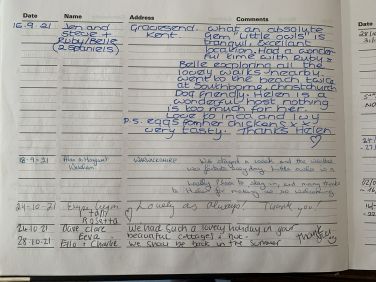 Date Name Address Comments Date
16.9.21 Jen and Gravesend. what an absolute
Steve + Kent gem little owls is
Ruby/Belle tranquil, excellant
(2 Spaniels) location. Had a wonder
ful time with Ruby &
Belle exploring all the
lovely walks nearby.
went to the beach twice
at Southbourne, christchurch
Dog friendly. Helen is a
wonderful host nothing
is too much for her.
Love to inca and
P.S. eggs from her chickens x x x
very tasty. Thanks Helen
18-9-21 Alan & Margaret Warwickshire We stayed a week and the weather
was
Lovely place to stay in, and many thanks
to Helen for making us so welcoming
24-10-21 Lovely as always! Thank you!
Rosetta
24.10.21 Dave Clare We had such a lovely holiday in your
Eeva beautiful cottages & hut.
28.10.21 Ello + Charlie We shall be back in the summer thank you